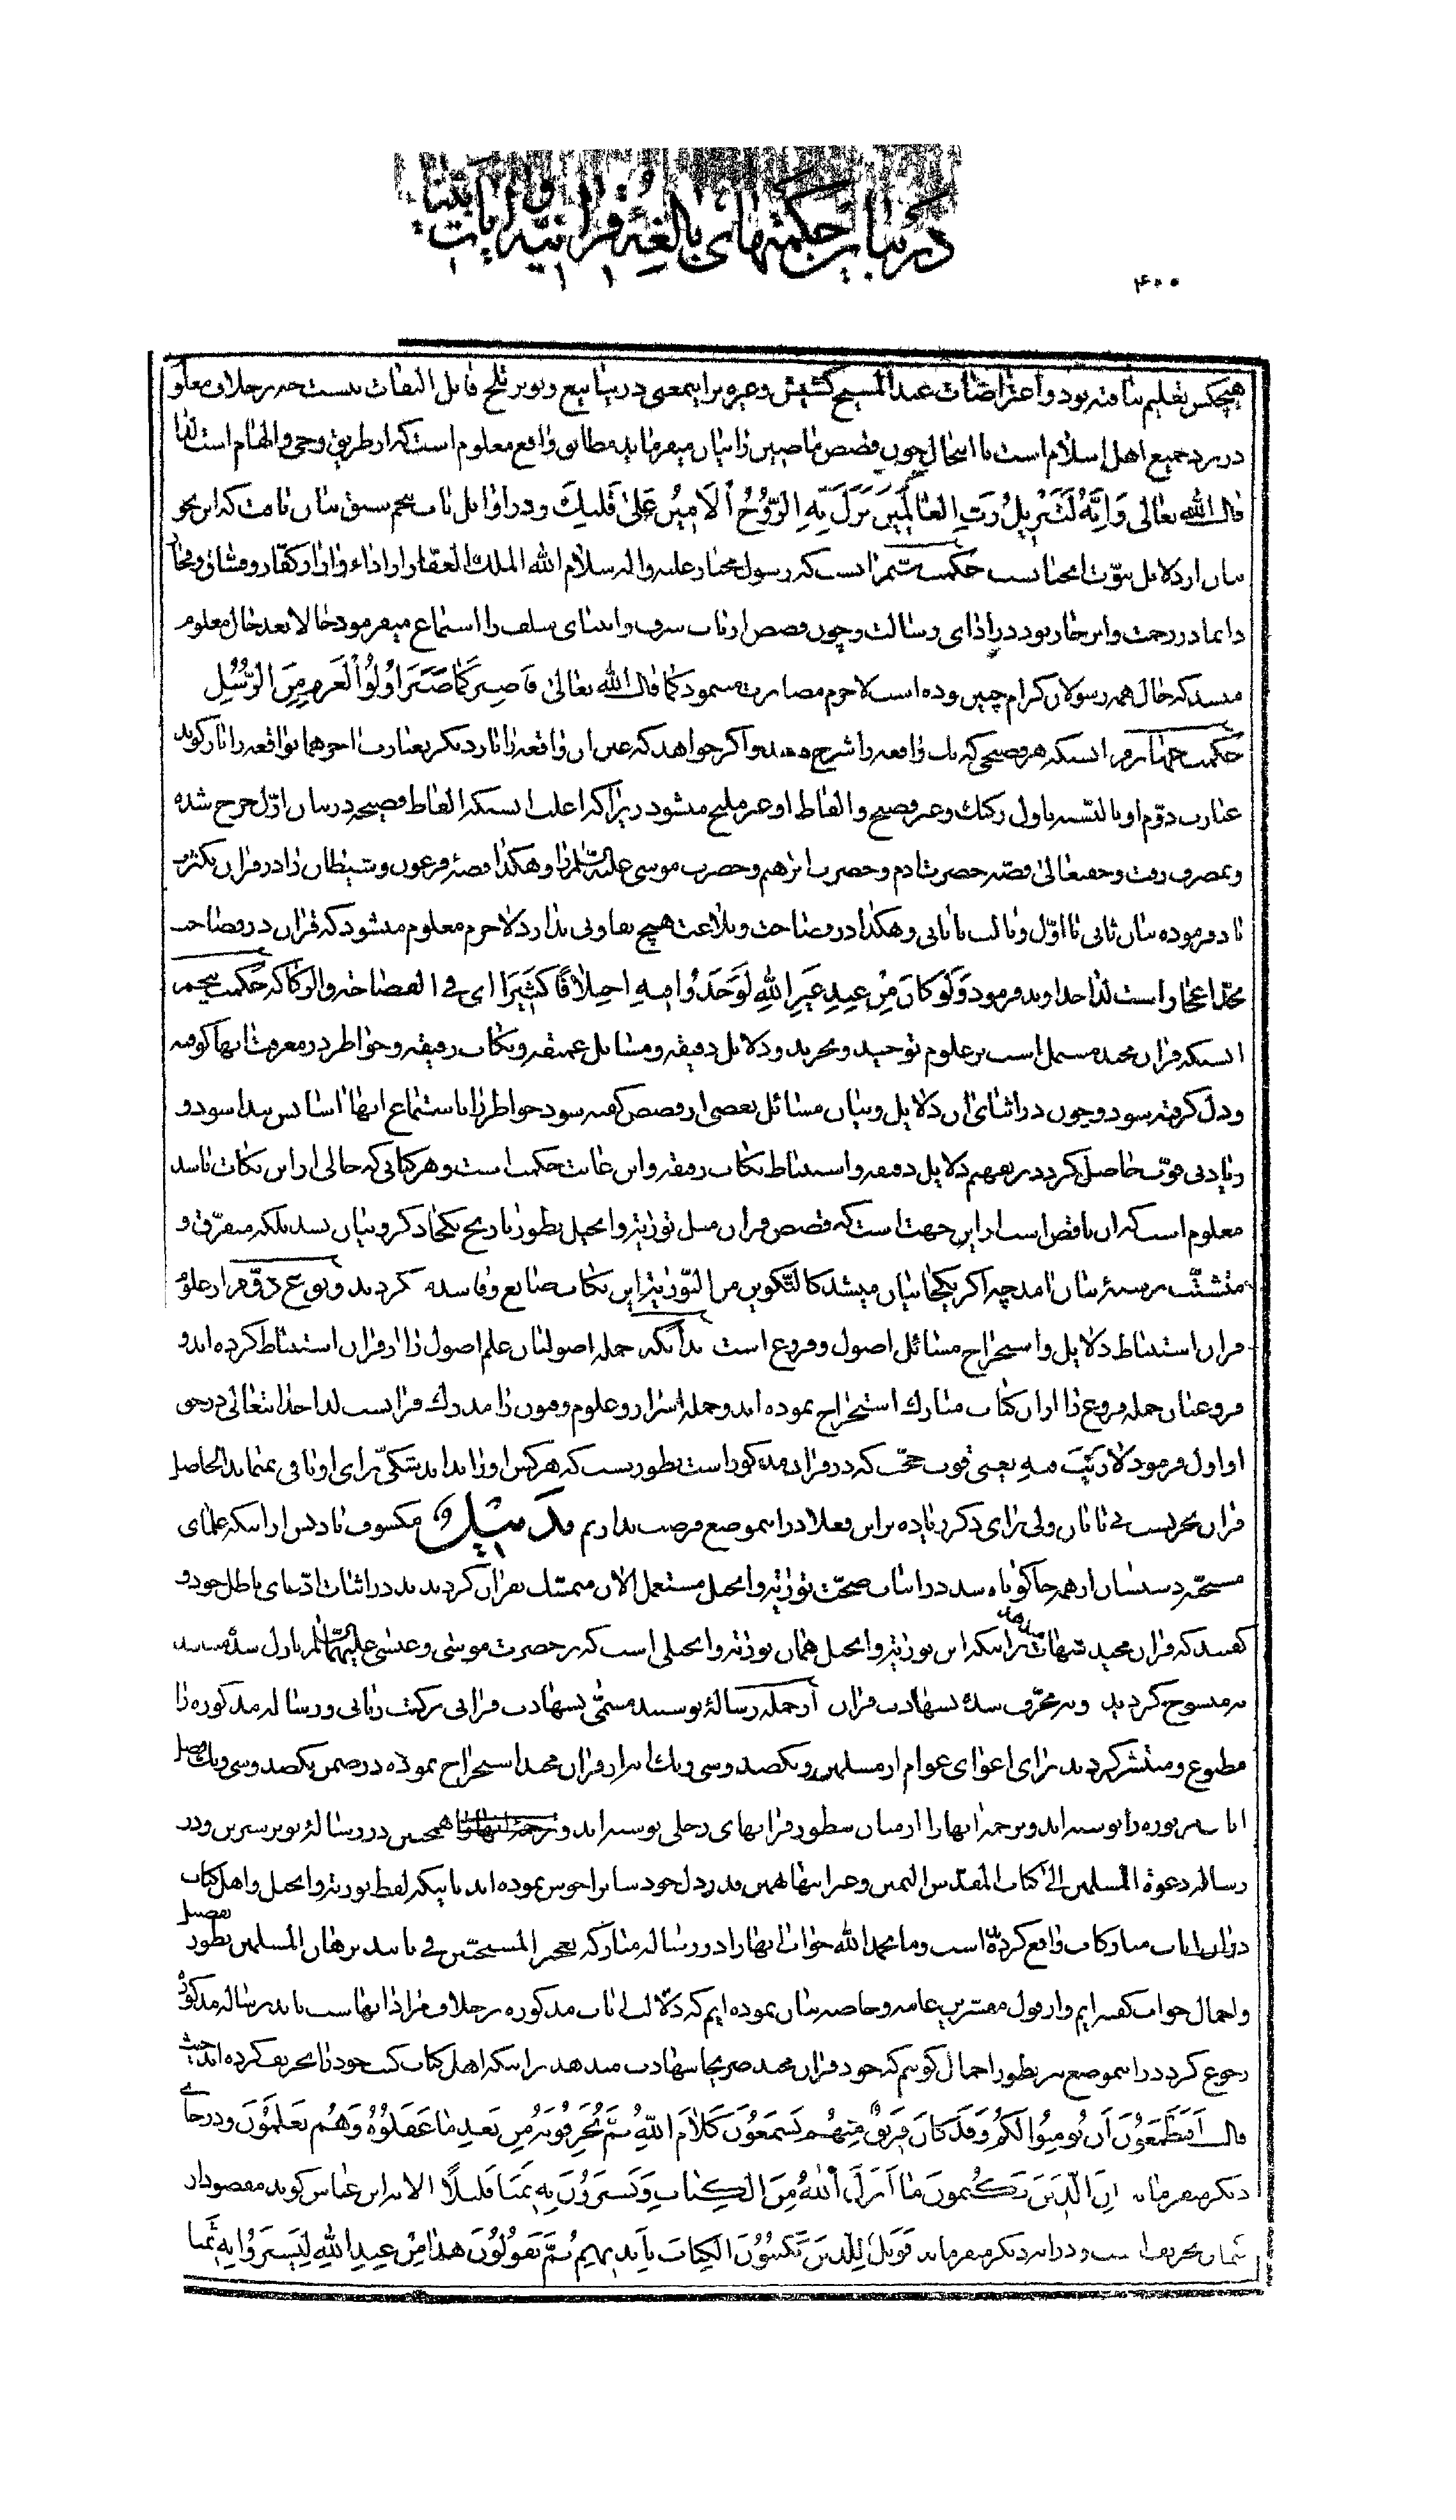 در بیان حکمتهای بالغهٔ قرانیه و آیات بینات
۴۰۰
هیچکس تعلیم نیافته بود و اعتراضات عبدالمسیح کشیش و غیره براینمعنی در ینابیع و تنویر قابل التفات نیست چه برخلاف معلو
در نزد جمیع اهل اسلام است با اینحال چون قصص ماضیین را بیان میفرماید مطابق واقع معلوم است که از طریق وحی و الهام است لذا
قال الله تعالی وَاِنَّهُ لَتَنْزِیلُ رَبِّ الْعالَمِینَ نَزَلَ بِهِ الرُّوحُ الْاَمِینُ عَلیٰ قَلْبِكَ و در اوایل باب پنجم سبق بیان یافت که این نحو
بیان از دلایل نبوّت انجناب است حکمت سیّم انست که رسول مختار علیه و اله سلام الله الملك الغفار از اذاء و ازار کفّار و منافق
دایما در زحمت و انزجار بود در اذای رسالت و چون قصص ارباب شرف و انبیای سلف را استماع میفرمود حالا بعد حال معلوم
میشد که حال همه رسولان کرام چنین بوده است لاجرم مصابرت مینمود کما قال الله تعالیٰ فَاصْبِرْ کَمَا صَبَرَ اُولُوا الْعَزْمِ مِنَ الرُّسُلِ
حکمت چهارم انستکه هر فصیحی که یك واقعه را شرح دهد و اگر خواهد که عین ان واقعه را بار دیگر بعبارت اخری همان واقعه را باز گوید
عبارت دوّم او بالنسبه باول رکیك و غیر فصیح و الفاظ او غیر ملیح میشود زیرا که اغلب انستکه الفاظ فصیحه در بیان اوّل خرج شده
و بمصرف رفت و حقتعالی قصّه حضرت ادم و حضرت ابرهیم و حضرت موسی علیه السلام را و هکذا قصهٔ فرعون و شیطان را در قران بکثرت
یاد فرموده بیان ثانی با اوّل و ثالث با ثانی و هکذا در فصاحت و بلاغت هیچ تفاوتی ندارد لاجرم معلوم میشود که قران در فصاحت
بحدّ اعجاز است لذا خداوند فرمود وَلَوْ کانَ مِنْ عِنْدِ غَیْرِ اللهِ لَوَجَدُوا فِیهِ اخْتِلافًا کَثِیرًا ای فی الفصاحة و الرکاکة حکمت پنجم
انستکه قران مجید مشتمل است بر علوم توحید و تجرید و دلایل دقیقه و مسایل عمیقه و نکات رقیقه و خواطر در معرفت اینها کوفته
و دل گرفته شود و چون در اثنای ان دلایل و بیان مسائل بعضی از قصص گفته شود خواطر را باستماع انها اسایش پیدا شود و
زیادتی قوّت حاصل گردد در تفهیم دلایل دقیقه و استنباط نکات رقیقه و این غایت حکمت است و هر کتابی که خالی از این نکات باشد
معلوم است که ان ناقص است از این جهت است که قصص قران مثل توریة و انجیل بطور تاریخ یکجا ذکر و بیان نشد بلکه متفرّق و
منشتّت مرتبهٔ بیان امد چه اگر یکجا بیان میشد کالتّکوین من التّوریة این نکات ضایع و فاسده گردید و نوع دوّم از علوم
قران استنباط دلایل و استخراج مسائل اصول و فروع است بدانکه جمله اصولیان علم اصول را از قران استنباط کرده اند و
فروعیان جمله فروع را از ان کتاب مبارك استخراج نموده اند و جمله اسرار و علوم و فنون را مدرك قرانست لذا خدایتعالی در حق
او اول فرمود لارَیْبَ فیهِ یعنی قوت حجّت که در قران مذکور است بطوریست که هر کس او را بداند شکّی برای او باقی نمیماند الحاصل
قران بحریست بی پایان ولی برای ذکر زیاده براین فعلا در اینموضع فرصت نداریم تذییل مکشوف باد پس از اینکه علمای
مسیحیّه دستشان از همه جا کوتاه شد در اثبات صحّت توریة و انجیل مستعمل الان متمسّك بقران گردیدند در اثبات ادّعای باطل خود و
گفتند که قران مجید شهادت میدهد براینکه این توریة و انجیل همان توریة و انجیلی است که بر حضرت موسی و عیسی علیهما السلام نازل شده نیستند
نه منسوخ گردید و نه محرّف شده بشهادت قران ازجمله رسالهٔ نوشتند مسمّی بشهادت قرانی بر کتب ربّانی و رساله مذکوره را
مطبوع و منتشر گردیدند برای اغوای عوام از مسلمین و یکصد و سی و یك ایه از قران مجید استخراج نموده در ضمن یکصد و سی و یك فصل
ایات مزبوره را نوشته اند و ترجمه انها را از میان سطور قرانهای رحلی نوشته اند و همچنین در رسالهٔ و در
رساله دعوة المسلمین الی الکتاب المقدّس الثمین و غیر اینها همین قدر دل خود شان را خوش نموده اند باینکه لفظ توریة و انجیل و اهل کتاب
در ان ایات مبارکات واقع گردیده است و ما بحمد الله جواب اینها را در رساله مبارکه تعجیز المسیحیّین فی تایید برهان المسلمین بطور تفصیل
و اجمال جواب گفته ایم و از قول مفسّرین عامه و خاصه بیان نموده ایم که دلالت ایات مذکوره برخلاف مراد اینهاست باید برساله مذکوره
رجوع گردد در اینموضع نیز بطور اجمال گوئیم که خود قران مجید صریحا شهادت میدهد براینکه اهل کتاب کتب خود را تحریف کرده اند حیث
قال اَفَتَطْمَعُونَ اَنْ یُؤْمِنُوا لَکُمْ وَقَدْ کانَ فَرِیقٌ مِنْهُمْ یَسْمَعُونَ کَلامَ اللهِ ثُمَّ یُحَرِّفُونَهُ مِنْ بَعْدِ ما عَقَلُوهُ وَهُمْ یَعْلَمُونَ و در جای
دیگر میفرماید اِنَّ الَّذِینَ یَکْتُمُونَ ما اَنْزَلَ اللهُ مِنَ الْکِتابِ وَیَشْتَرُونَ بِهِ ثَمَنًا قَلِیلًا الایه ابن عباس گوید مقصود از
تحریف است و در ایه دیگر میفرماید فَوَیْلٌ لِلَّذِینَ یَکْتُبُونَ الْکِتابَ بِاَیْدِیهِمْ ثُمَّ یَقُولُونَ هذا مِنْ عِنْدِ اللهِ لِیَشْتَرُوا بِهِ ثَمَنًا